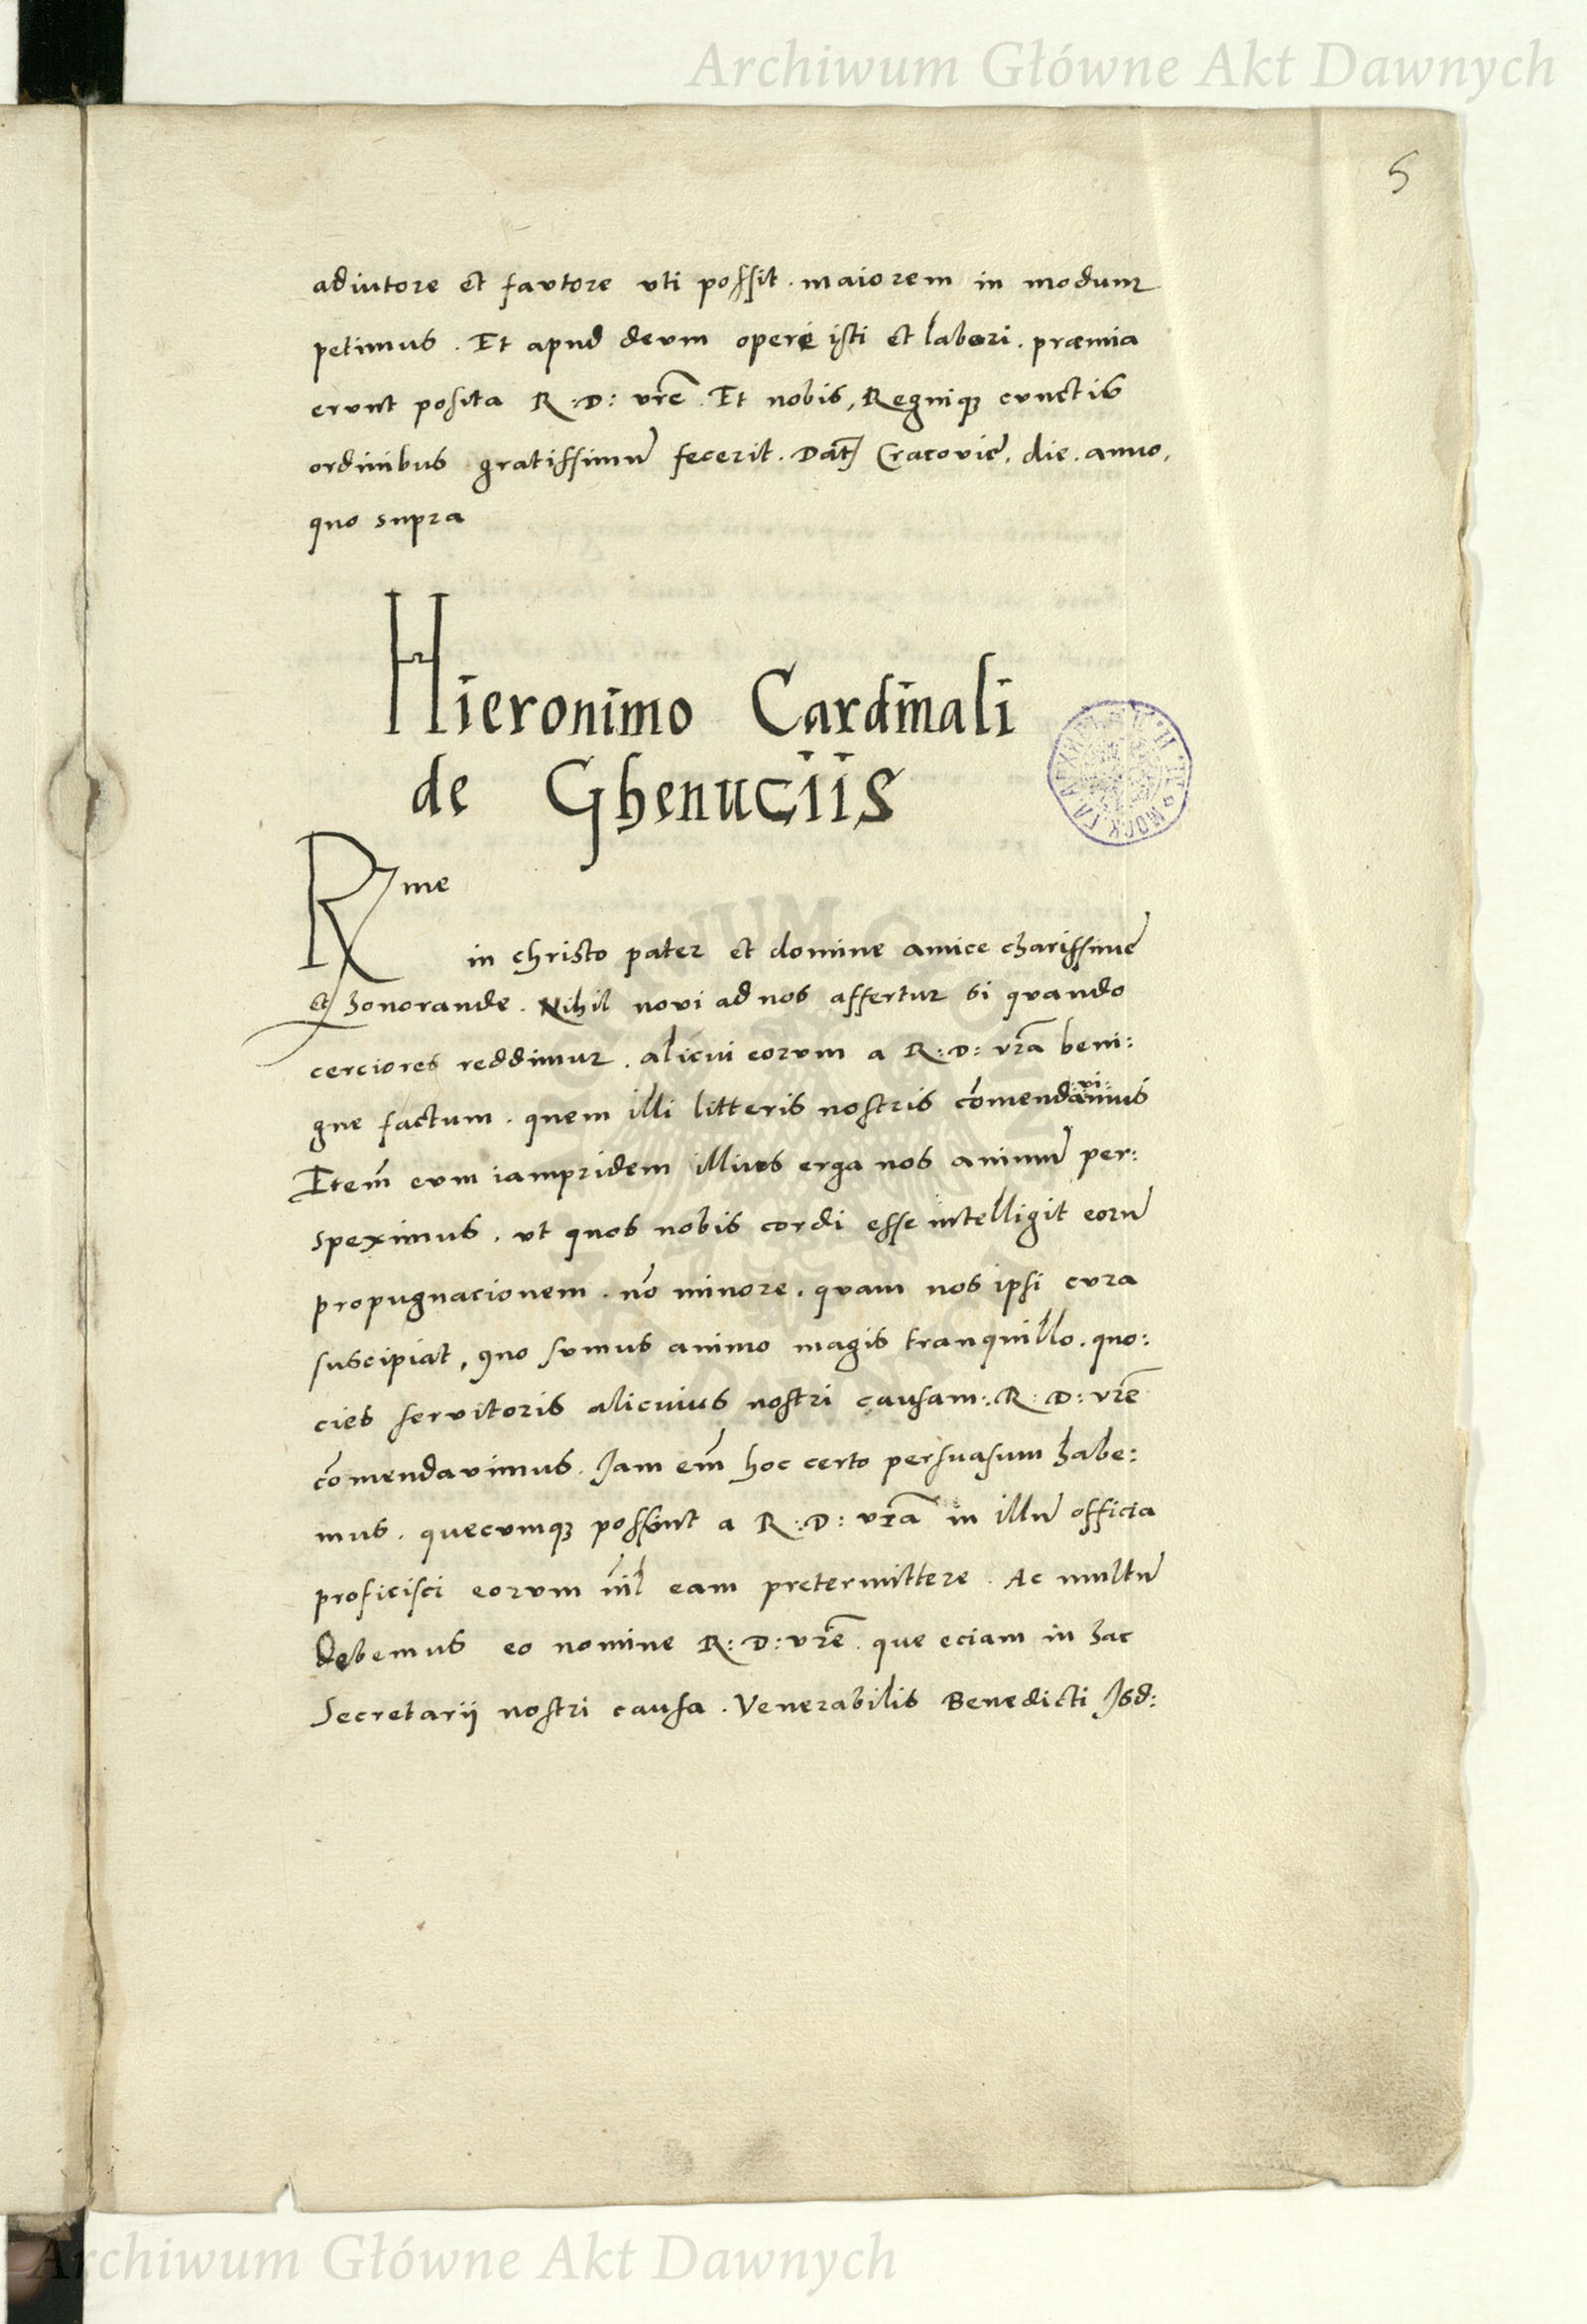 Archiwum Główne Akt Dawnych
5
adiutore et fautore uti possit. maiorem in modum
petimus. Et apud deum operi isti et labori. præmia
erunt posita R:D: vrē. Et nobis, Regniq3 cunctis
ordinibus gratissimū fecerit. Dat Cracoviē. die. anno.
quo supra
Hieronimo Cardinali
de Ghenuciis
Rme
in christo pater et domine amice charissimē
et honorande. Nihil novi ad nos affertur si quando
cerciores reddimur. alicui eorum a R:D: vrā beni:
gne factum. quem illi litteris nostris cōmendavimus
Itē eum iampridem illius erga nos animū per:
speximus. ut quos nobis cordi esse intelligit eorū
propugnacionem. nō minore. quam nos ipsi cura
suscipiat, quo sumus animo magis tranquillo. quo:
cies servitoris alicuius nostri causam: R:D: vrē
cōmendavimus. Jam em̄ hoc certo persuasum habe:
mus. quecumq3 possint a R:D: vrā in illū officia
proficisci eorum nīl eam pretermittere. Ac multū
Debemus eo nomine R:D: vrē. que eciam in hac
Secretarii nostri causa. Venerabilis Benedicti Jsd:
Archiwum Główne Akt Dawnych